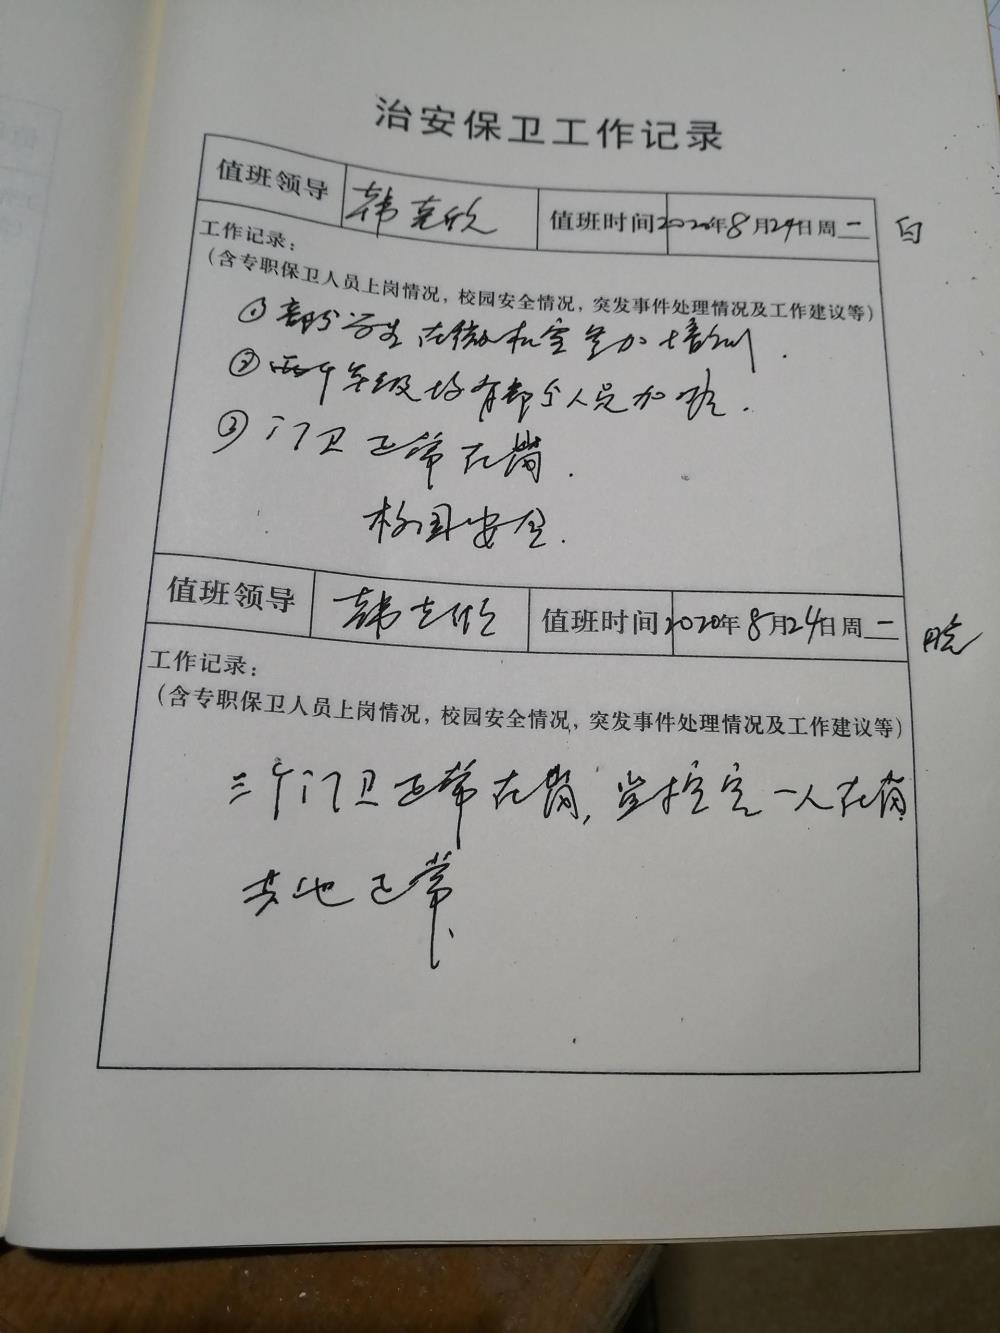 治安保卫工作记录
值班领导 韩克欣 值班时间 2020年8月24日周一 白
工作记录：
（含专职保卫人员上岗情况，校园安全情况，突发事件处理情况及工作建议等）
① 部分学生在微机室参加培训.
② 两个年级均有部分人员加班.
③ 门卫正常在岗.
校园安全.
值班领导 韩克欣 值班时间 2020年8月24日周一 晚
工作记录：
（含专职保卫人员上岗情况，校园安全情况，突发事件处理情况及工作建议等）
三个门卫正常在岗, 监控室一人在岗
其他正常、